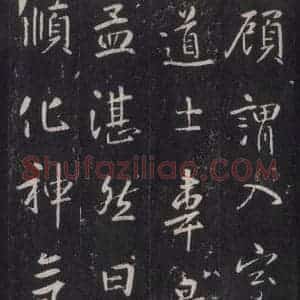 顧謂入室
道士韋
孟湛然曰
傾化神
Shufaziliao.COM